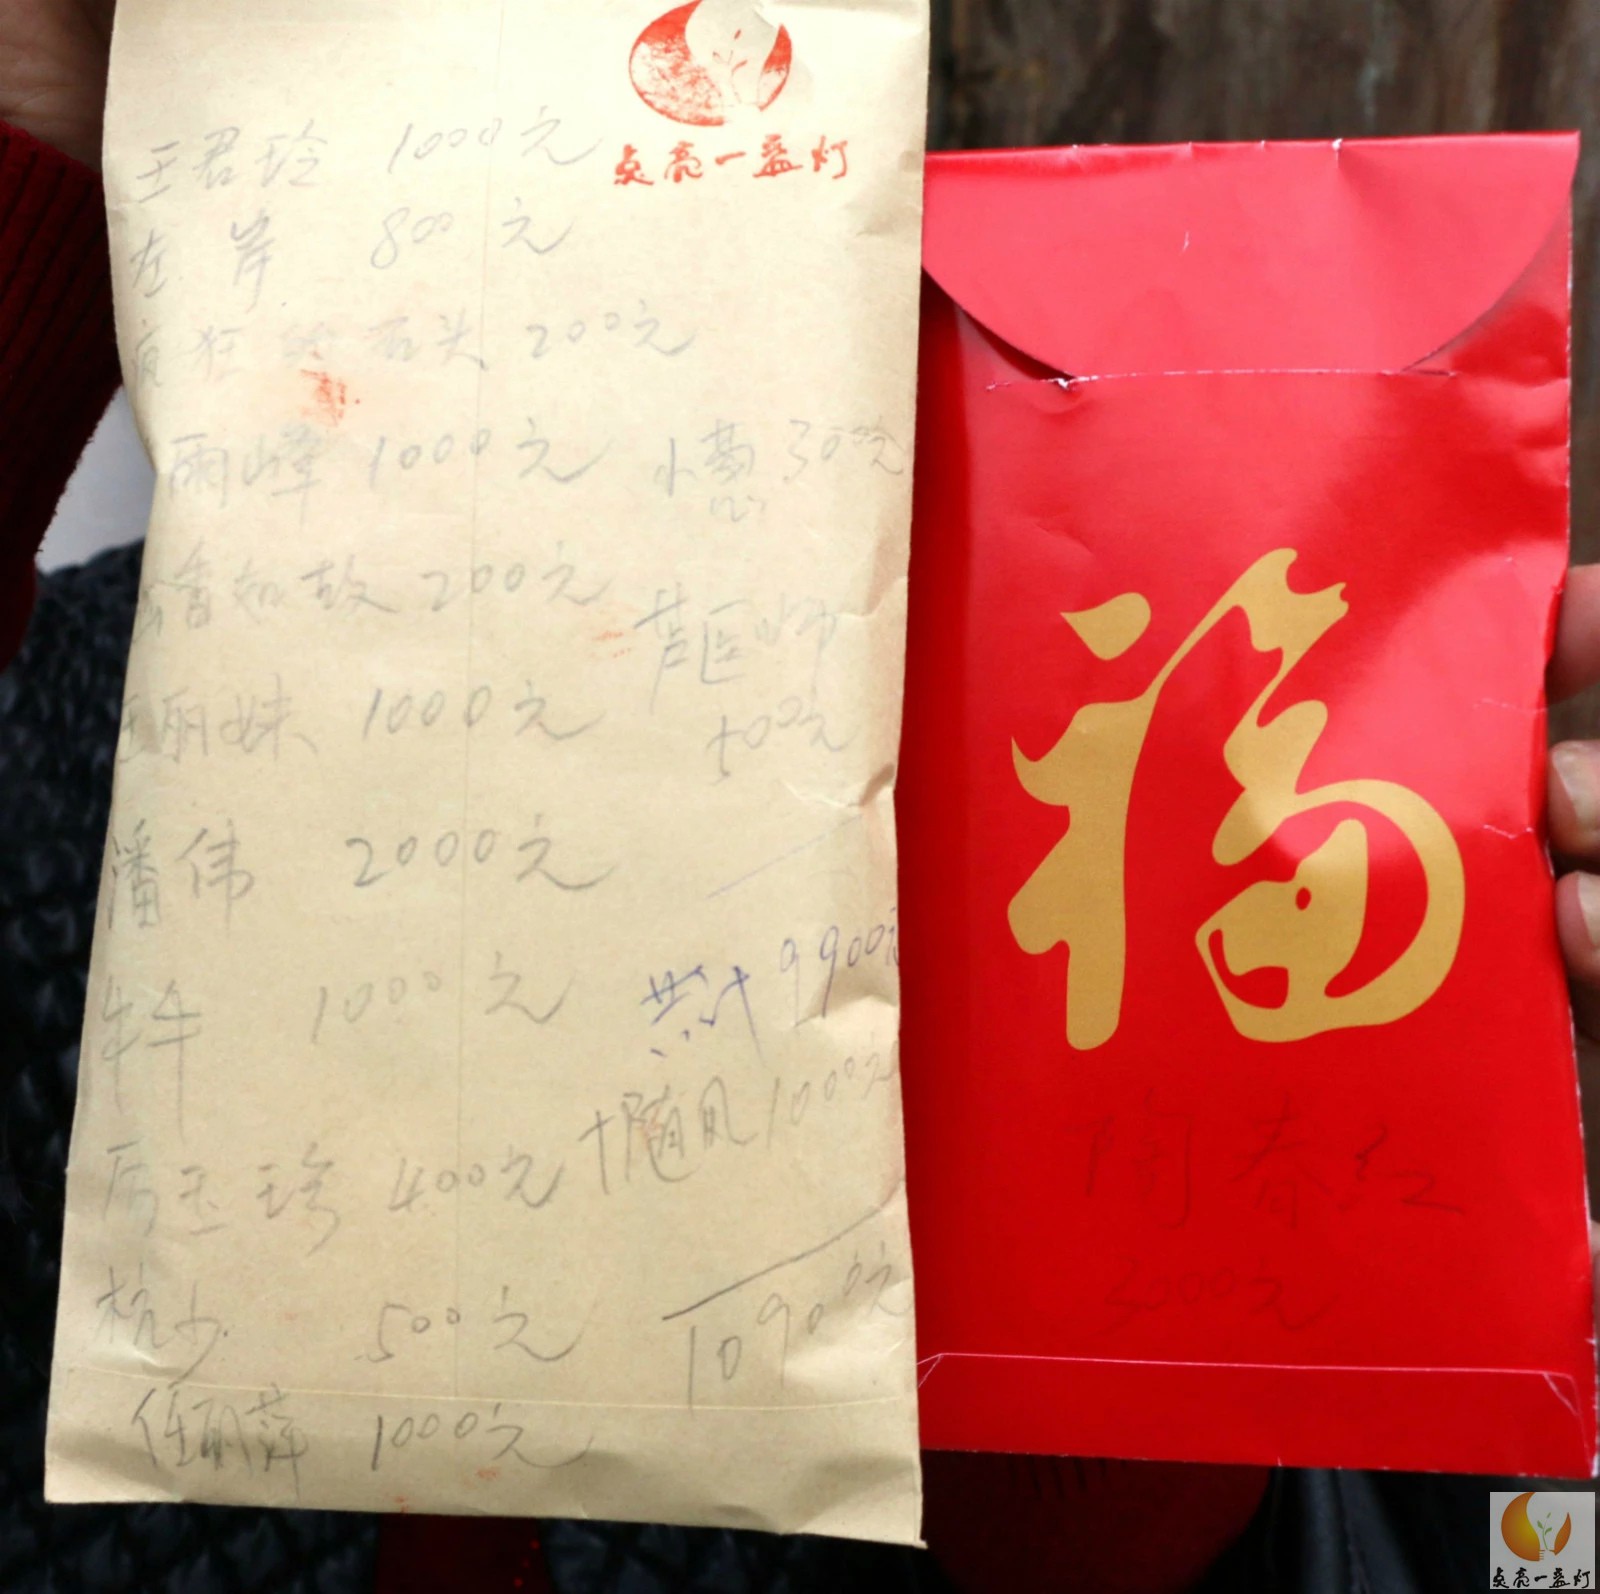 点亮一益灯
王君玲 1000元
左岸 800元
疯狂的石头 200元
雨峰 1000元
小慧 300元
云香如故 200元
芦医师
500元
王丽妹 1000元
潘伟 2000元
共计 9900元
牛牛 1000元
十随风 1000元
厉玉珍 400元
杭少 500元
10900元
任丽萍 1000元
福
陶春红
3000元
点亮一益灯